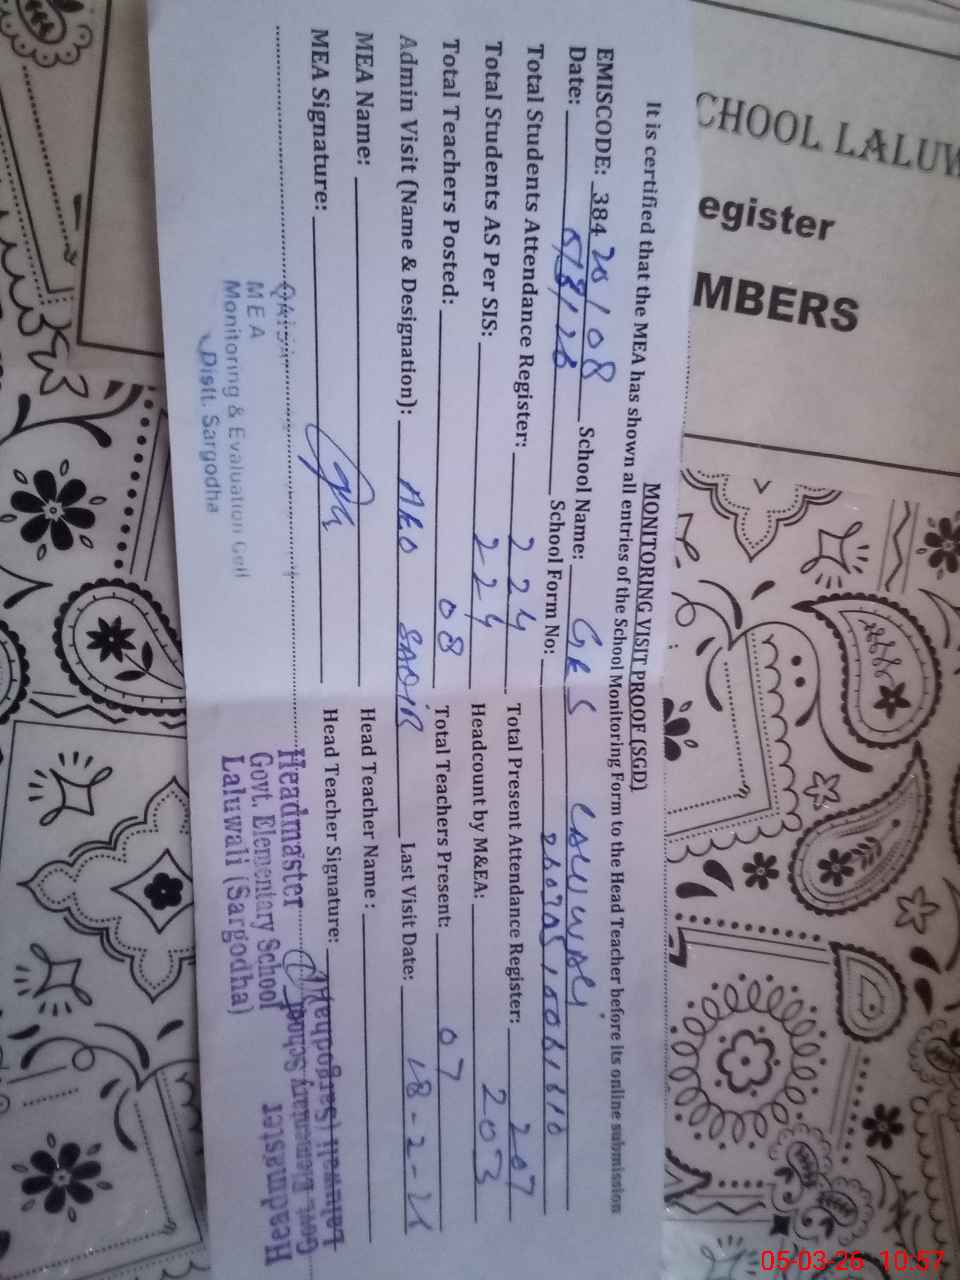 CHOOL LALUW
egister
MBERS
MONITORING VISIT PROOF (SGD)
It is certified that the MEA has shown all entries of the School Monitoring Form to the Head Teacher before its online submission
EMISCODE: 384 20108 School Name: GES LALUWALI
Date: 5/3/26 School Form No:
Total Students Attendance Register: 224 Total Present Attendance Register: 207
Total Students AS Per SIS: 224 Headcount by M&EA: 203
Total Teachers Posted: 08 Total Teachers Present: 07
Admin Visit (Name & Designation): AEO Last Visit Date: 18-2-2
MEA Name: Head Teacher Name :
MEA Signature: Head Teacher Signature:
MEA
Monitoring & Evaluation Cell
Distt. Sargodha
Headmaster
Govt. Elementary School
Laluwali (Sargodha)
Headmaster
Govt. Elementary School
Laluwali (Sargodha)
05-03-26 10:57